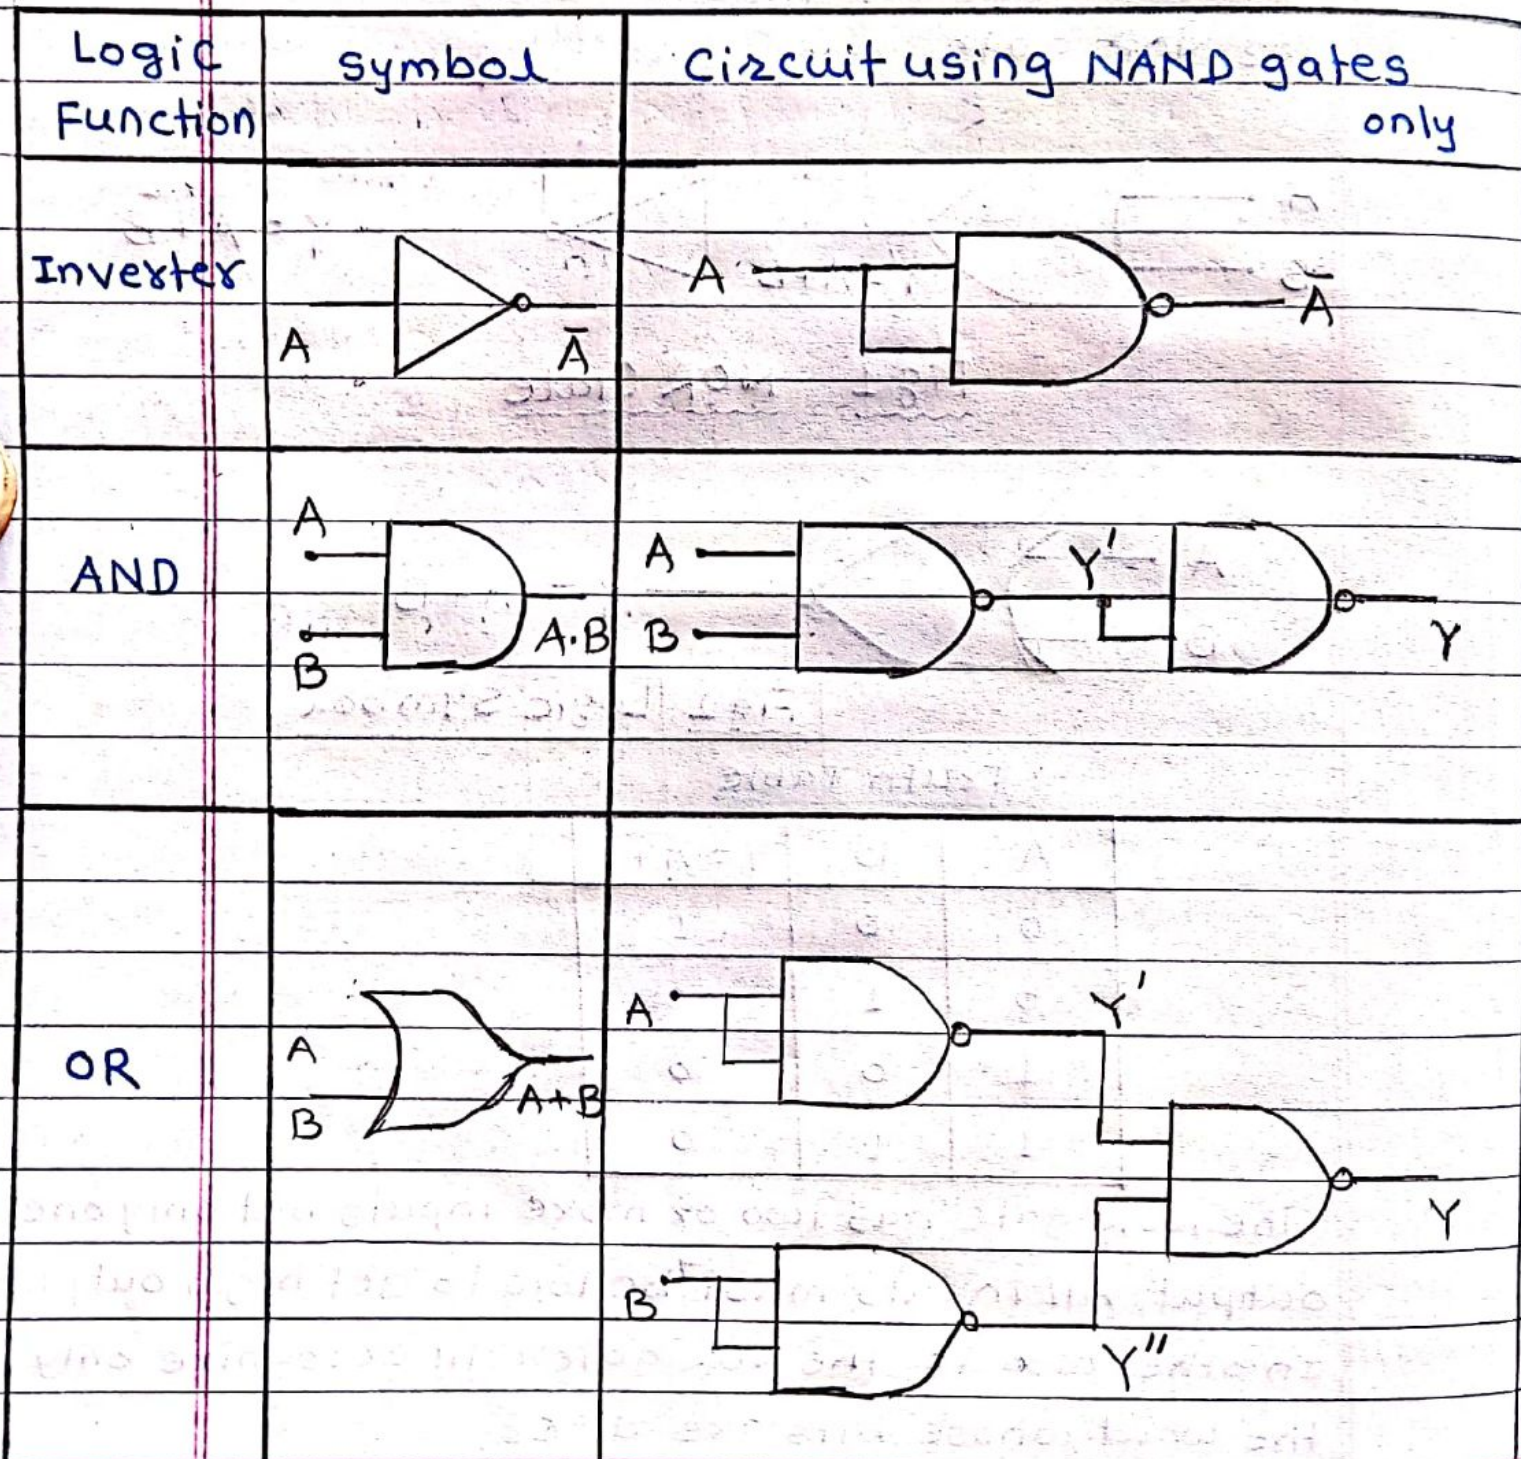 Logic Function
Symbol
Circuit using NAND gates only
Inverter
A
Ā
A
Ā
AND
A
B
A.B
A
B
Y'
Y
OR
A
B
A+B
A
Y'
B
Y"
Y